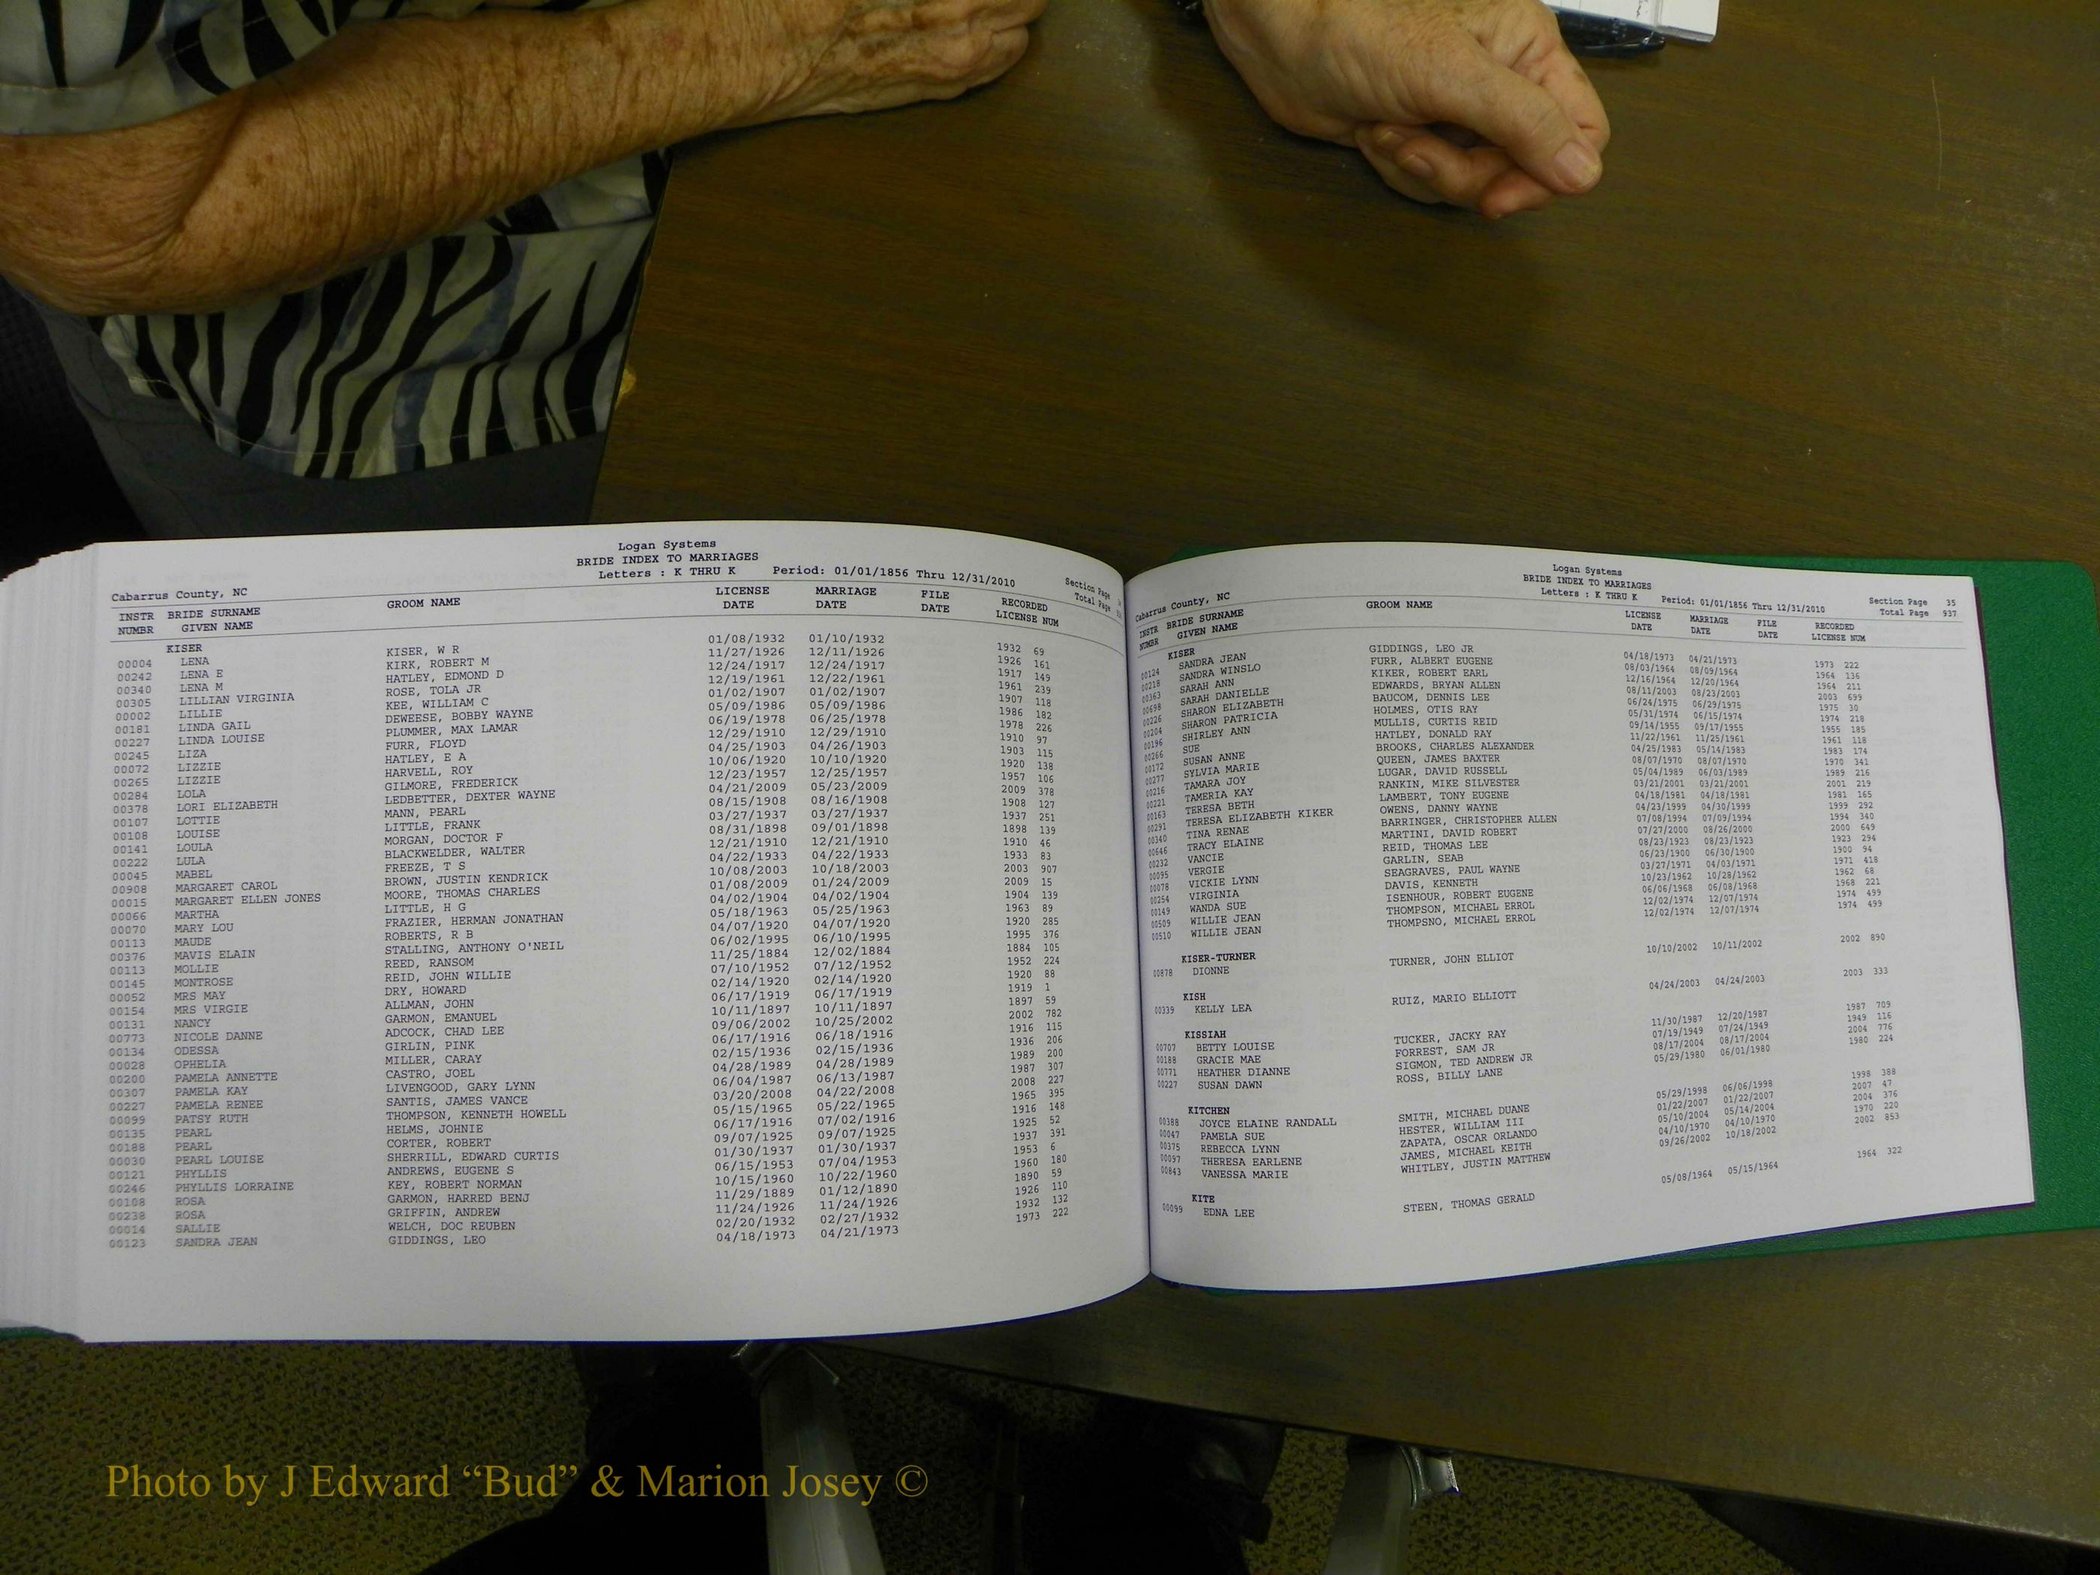 Logan Systems
BRIDE INDEX TO MARRIAGES
Letters : K THRU K Period: 01/01/1856 Thru 12/31/2010
Cabarrus County, NC Section Page
Total Page
INSTR BRIDE SURNAME GROOM NAME LICENSE MARRIAGE FILE RECORDED
NUMBR GIVEN NAME DATE DATE DATE LICENSE NUM
KISER
00004 LENA KISER, W R 01/08/1932 01/10/1932 1932 69
00242 LENA E KIRK, ROBERT M 11/27/1926 12/11/1926 1926 161
00340 LENA M HATLEY, EDMOND D 12/24/1917 12/24/1917 1917 149
00305 LILLIAN VIRGINIA ROSE, TOLA JR 12/19/1961 12/22/1961 1961 239
00002 LILLIE KEE, WILLIAM C 01/02/1907 01/02/1907 1907 118
00181 LINDA GAIL DEWEESE, BOBBY WAYNE 05/09/1986 05/09/1986 1986 182
00227 LINDA LOUISE PLUMMER, MAX LAMAR 06/19/1978 06/25/1978 1978 226
00245 LIZA FURR, FLOYD 12/29/1910 12/29/1910 1910 97
00072 LIZZIE HATLEY, E A 04/25/1903 04/26/1903 1903 115
00265 LIZZIE HARVELL, ROY 10/06/1920 10/10/1920 1920 138
00284 LOLA GILMORE, FREDERICK 12/23/1957 12/25/1957 1957 106
00378 LORI ELIZABETH LEDBETTER, DEXTER WAYNE 04/21/2009 05/23/2009 2009 378
00107 LOTTIE MANN, PEARL 08/15/1908 08/16/1908 1908 127
00108 LOUISE LITTLE, FRANK 03/27/1937 03/27/1937 1937 251
00141 LOULA MORGAN, DOCTOR F 08/31/1898 09/01/1898 1898 139
00222 LULA BLACKWELDER, WALTER 12/21/1910 12/21/1910 1910 46
00045 MABEL FREEZE, T S 04/22/1933 04/22/1933 1933 83
00908 MARGARET CAROL BROWN, JUSTIN KENDRICK 10/08/2003 10/18/2003 2003 907
00015 MARGARET ELLEN JONES MOORE, THOMAS CHARLES 01/08/2009 01/24/2009 2009 15
00066 MARTHA LITTLE, H G 04/02/1904 04/02/1904 1904 139
00070 MARY LOU FRAZIER, HERMAN JONATHAN 05/18/1963 05/25/1963 1963 89
00113 MAUDE ROBERTS, R B 04/07/1920 04/07/1920 1920 285
00376 MAVIS ELAIN STALLING, ANTHONY O'NEIL 06/02/1995 06/10/1995 1995 376
00113 MOLLIE REED, RANSOM 11/25/1884 12/02/1884 1884 105
00145 MONTROSE REID, JOHN WILLIE 07/10/1952 07/12/1952 1952 224
00052 MRS MAY DRY, HOWARD 02/14/1920 02/14/1920 1920 88
00154 MRS VIRGIE ALLMAN, JOHN 06/17/1919 06/17/1919 1919 1
00131 NANCY GARMON, EMANUEL 10/11/1897 10/11/1897 1897 59
00773 NICOLE DANNE ADCOCK, CHAD LEE 09/06/2002 10/25/2002 2002 782
00134 ODESSA GIRLIN, PINK 06/17/1916 06/18/1916 1916 115
00028 OPHELIA MILLER, CARAY 02/15/1936 02/15/1936 1936 206
00200 PAMELA ANNETTE CASTRO, JOEL 04/28/1989 04/28/1989 1989 200
00307 PAMELA KAY LIVENGOOD, GARY LYNN 06/04/1987 06/13/1987 1987 307
00227 PAMELA RENEE SANTIS, JAMES VANCE 03/20/2008 04/22/2008 2008 227
00099 PATSY RUTH THOMPSON, KENNETH HOWELL 05/15/1965 05/22/1965 1965 395
00135 PEARL HELMS, JOHNIE 06/17/1916 07/02/1916 1916 148
00188 PEARL CORTER, ROBERT 09/07/1925 09/07/1925 1925 52
00030 PEARL LOUISE SHERRILL, EDWARD CURTIS 01/30/1937 01/30/1937 1937 391
00121 PHYLLIS ANDREWS, EUGENE S 06/15/1953 07/04/1953 1953 6
00246 PHYLLIS LORRAINE KEY, ROBERT NORMAN 10/15/1960 10/22/1960 1960 180
00108 ROSA GARMON, HARRED BENJ 11/29/1889 01/12/1890 1890 59
00238 ROSA GRIFFIN, ANDREW 11/24/1926 11/24/1926 1926 110
00014 SALLIE WELCH, DOC REUBEN 02/20/1932 02/27/1932 1932 132
00123 SANDRA JEAN GIDDINGS, LEO 04/18/1973 04/21/1973 1973 222
Logan Systems
BRIDE INDEX TO MARRIAGES
Letters : K THRU K Period: 01/01/1856 Thru 12/31/2010
Cabarrus County, NC Section Page 35
Total Page 937
INSTR BRIDE SURNAME GROOM NAME LICENSE MARRIAGE FILE RECORDED
NUMBR GIVEN NAME DATE DATE DATE LICENSE NUM
KISER
00124 SANDRA JEAN GIDDINGS, LEO JR 04/18/1973 04/21/1973 1973 222
00218 SANDRA WINSLO FURR, ALBERT EUGENE 08/03/1964 08/09/1964 1964 136
00363 SARAH ANN KIKER, ROBERT EARL 12/16/1964 12/20/1964 1964 211
00698 SARAH DANIELLE EDWARDS, BRYAN ALLEN 08/11/2003 08/23/2003 2003 699
00226 SHARON ELIZABETH BAUCOM, DENNIS LEE 06/24/1975 06/29/1975 1975 30
00204 SHARON PATRICIA HOLMES, OTIS RAY 05/31/1974 06/15/1974 1974 218
00196 SHIRLEY ANN MULLIS, CURTIS REID 09/14/1955 09/17/1955 1955 185
00260 SUE HATLEY, DONALD RAY 11/22/1961 11/25/1961 1961 118
00172 SUSAN ANNE BROOKS, CHARLES ALEXANDER 04/25/1983 05/14/1983 1983 174
00277 SYLVIA MARIE QUEEN, JAMES BAXTER 08/07/1970 08/07/1970 1970 341
00216 TAMARA JOY LUGAR, DAVID RUSSELL 05/04/1989 06/03/1989 1989 216
00221 TAMERIA KAY RANKIN, MIKE SILVESTER 03/21/2001 03/21/2001 2001 219
00163 TERESA BETH LAMBERT, TONY EUGENE 04/18/1981 04/18/1981 1981 165
00291 TERESA ELIZABETH KIKER OWENS, DANNY WAYNE 04/23/1999 04/30/1999 1999 292
00340 TINA RENAE BARRINGER, CHRISTOPHER ALLEN 07/08/1994 07/09/1994 1994 340
00646 TRACY ELAINE MARTINI, DAVID ROBERT 07/27/2000 08/26/2000 2000 649
00232 VANCIE REID, THOMAS LEE 08/23/1923 08/23/1923 1923 294
00095 VERGIE GARLIN, SEAB 06/23/1900 06/30/1900 1900 94
00078 VICKIE LYNN SEAGRAVES, PAUL WAYNE 03/27/1971 04/03/1971 1971 418
00254 VIRGINIA DAVIS, KENNETH 10/23/1962 10/28/1962 1962 68
00149 WANDA SUE ISENHOUR, ROBERT EUGENE 06/06/1968 06/08/1968 1968 221
00509 WILLIE JEAN THOMPSON, MICHAEL ERROL 12/02/1974 12/07/1974 1974 499
00510 WILLIE JEAN THOMPSNO, MICHAEL ERROL 12/02/1974 12/07/1974 1974 499
KISER-TURNER
00878 DIONNE TURNER, JOHN ELLIOT 10/10/2002 10/11/2002 2002 890
KISH
00339 KELLY LEA RUIZ, MARIO ELLIOTT 04/24/2003 04/24/2003 2003 333
KISSIAH
00707 BETTY LOUISE TUCKER, JACKY RAY 11/30/1987 12/20/1987 1987 709
00188 GRACIE MAE FORREST, SAM JR 07/19/1949 07/24/1949 1949 116
00771 HEATHER DIANNE SIGMON, TED ANDREW JR 08/17/2004 08/17/2004 2004 776
00227 SUSAN DAWN ROSS, BILLY LANE 05/29/1980 06/01/1980 1980 224
KITCHEN
00388 JOYCE ELAINE RANDALL SMITH, MICHAEL DUANE 05/29/1998 06/06/1998 1998 388
00047 PAMELA SUE HESTER, WILLIAM III 01/22/2007 01/22/2007 2007 47
00375 REBECCA LYNN ZAPATA, OSCAR ORLANDO 05/10/2004 05/14/2004 2004 376
00097 THERESA EARLENE JAMES, MICHAEL KEITH 04/10/1970 04/10/1970 1970 220
00843 VANESSA MARIE WHITLEY, JUSTIN MATTHEW 09/26/2002 10/18/2002 2002 853
KITE
00099 EDNA LEE STEEN, THOMAS GERALD 05/08/1964 05/15/1964 1964 322
Photo by J Edward “Bud” & Marion Josey ©